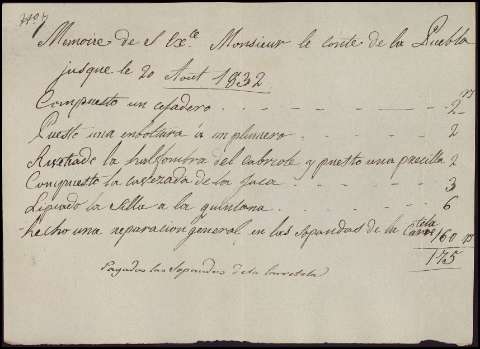 Nº 7
Memoire de S Exᶜˡᵉ Monsieur le conte de la Puebla
jusque le 20 Aout 1832
Compuesto un cejadero 2 rˢ
Puesto una enboltura á un plumero 2
la halfombra del cabriole y puesto una presilla 2
Conpuesto la cavezada de la Jaca 3
Lipiado la Silla a la quintana 6
hecho una reparacion general en las Sopandas de la Carretela 160 rˢ
175
Pagadas las Sopandas de la carretela